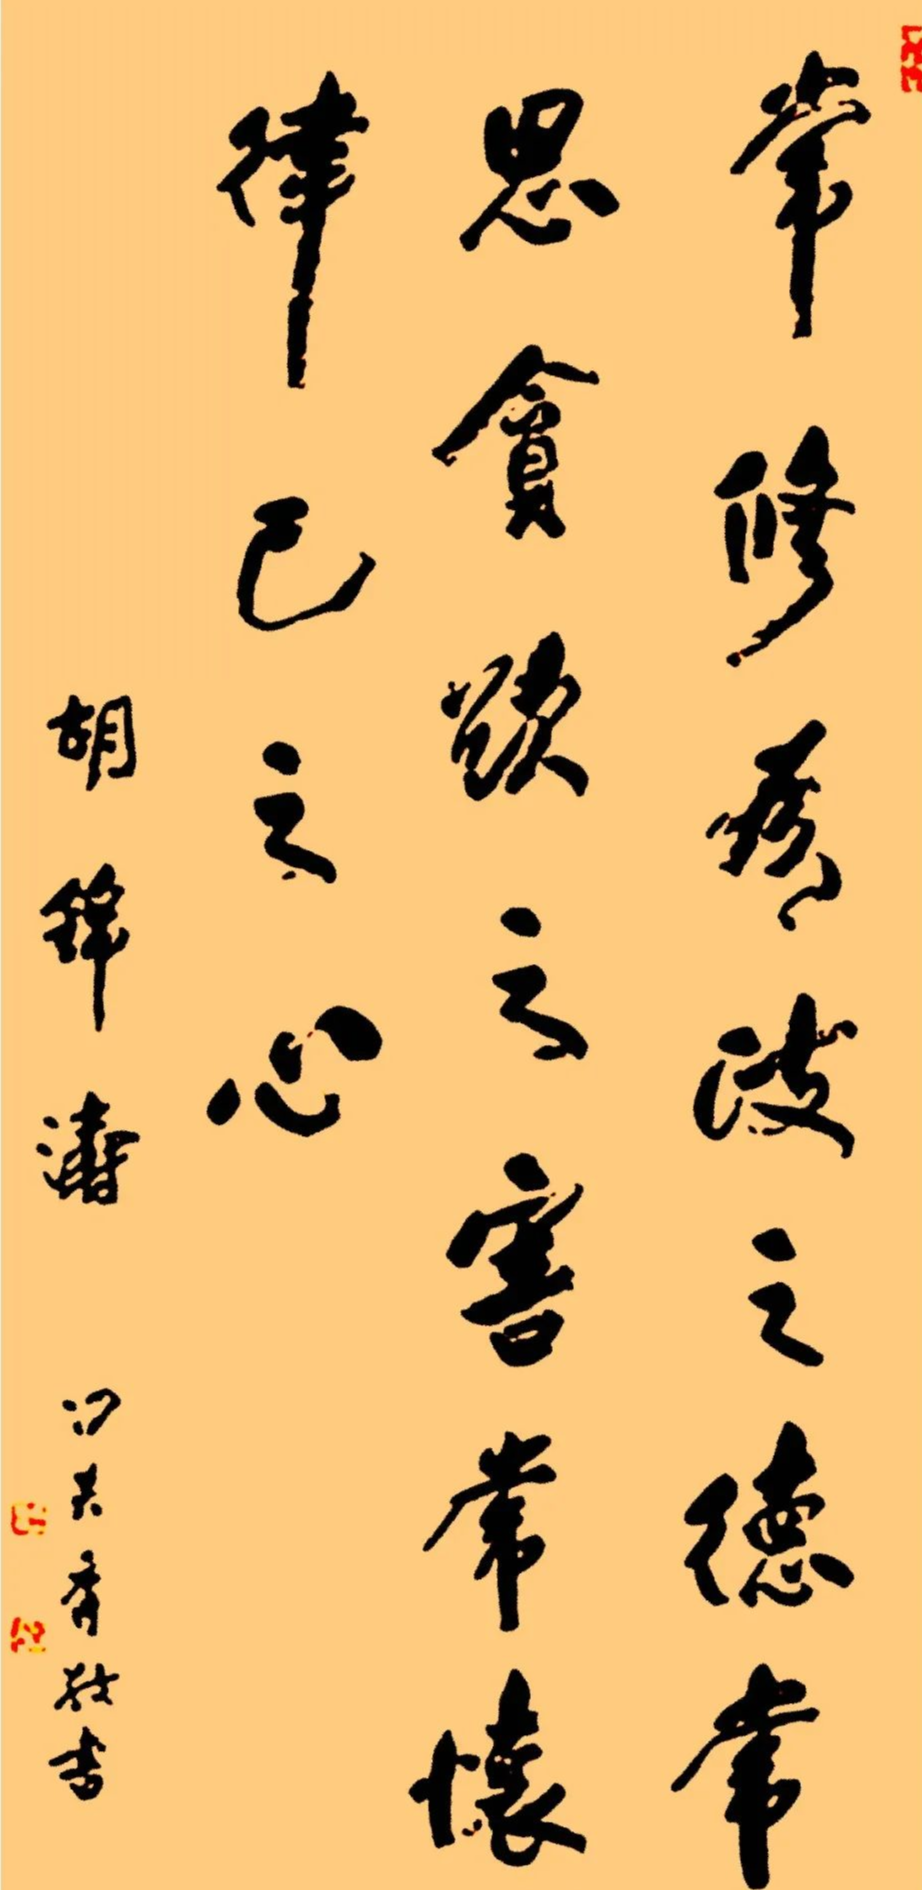 常修為政之德常
思貪欲之害常懷
律己之心
胡錦濤
秀敬書